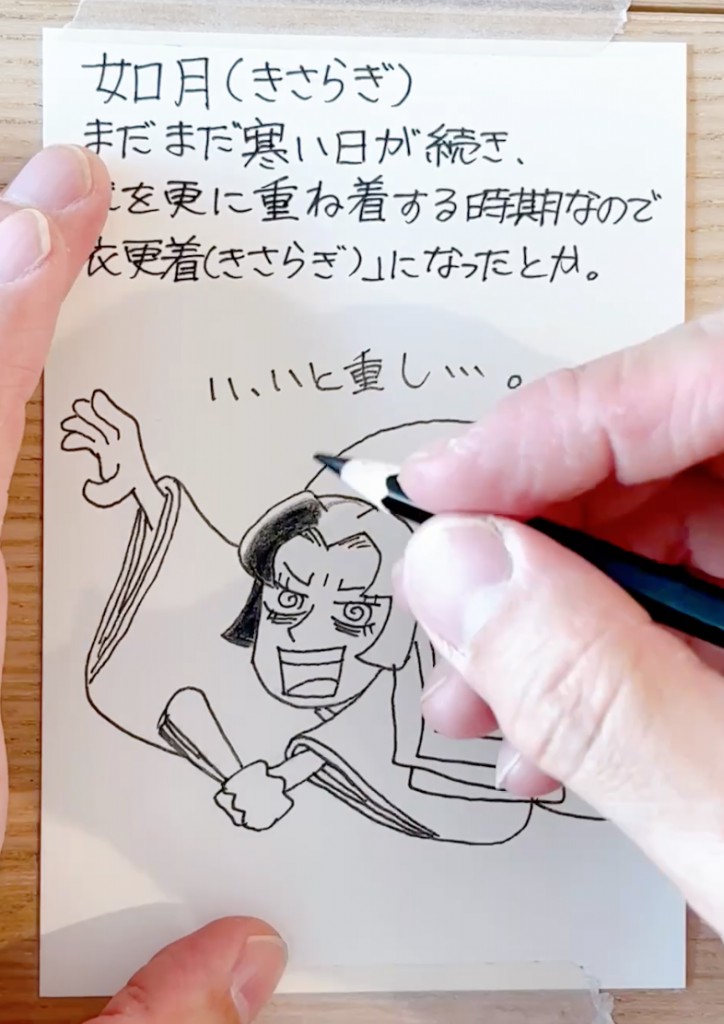 如月(きさらぎ)
まだまだ寒い日が続き、
を更に重ね着する時期なので
衣更着(きさらぎ)」になったとか。
い、いと重し…。